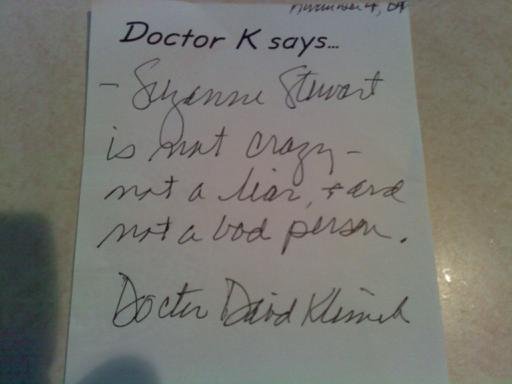 November 4, 09
Doctor K says...
- Suzanne Stewart
is not crazy -
not a liar, + and
not a bad person.
Doctor David